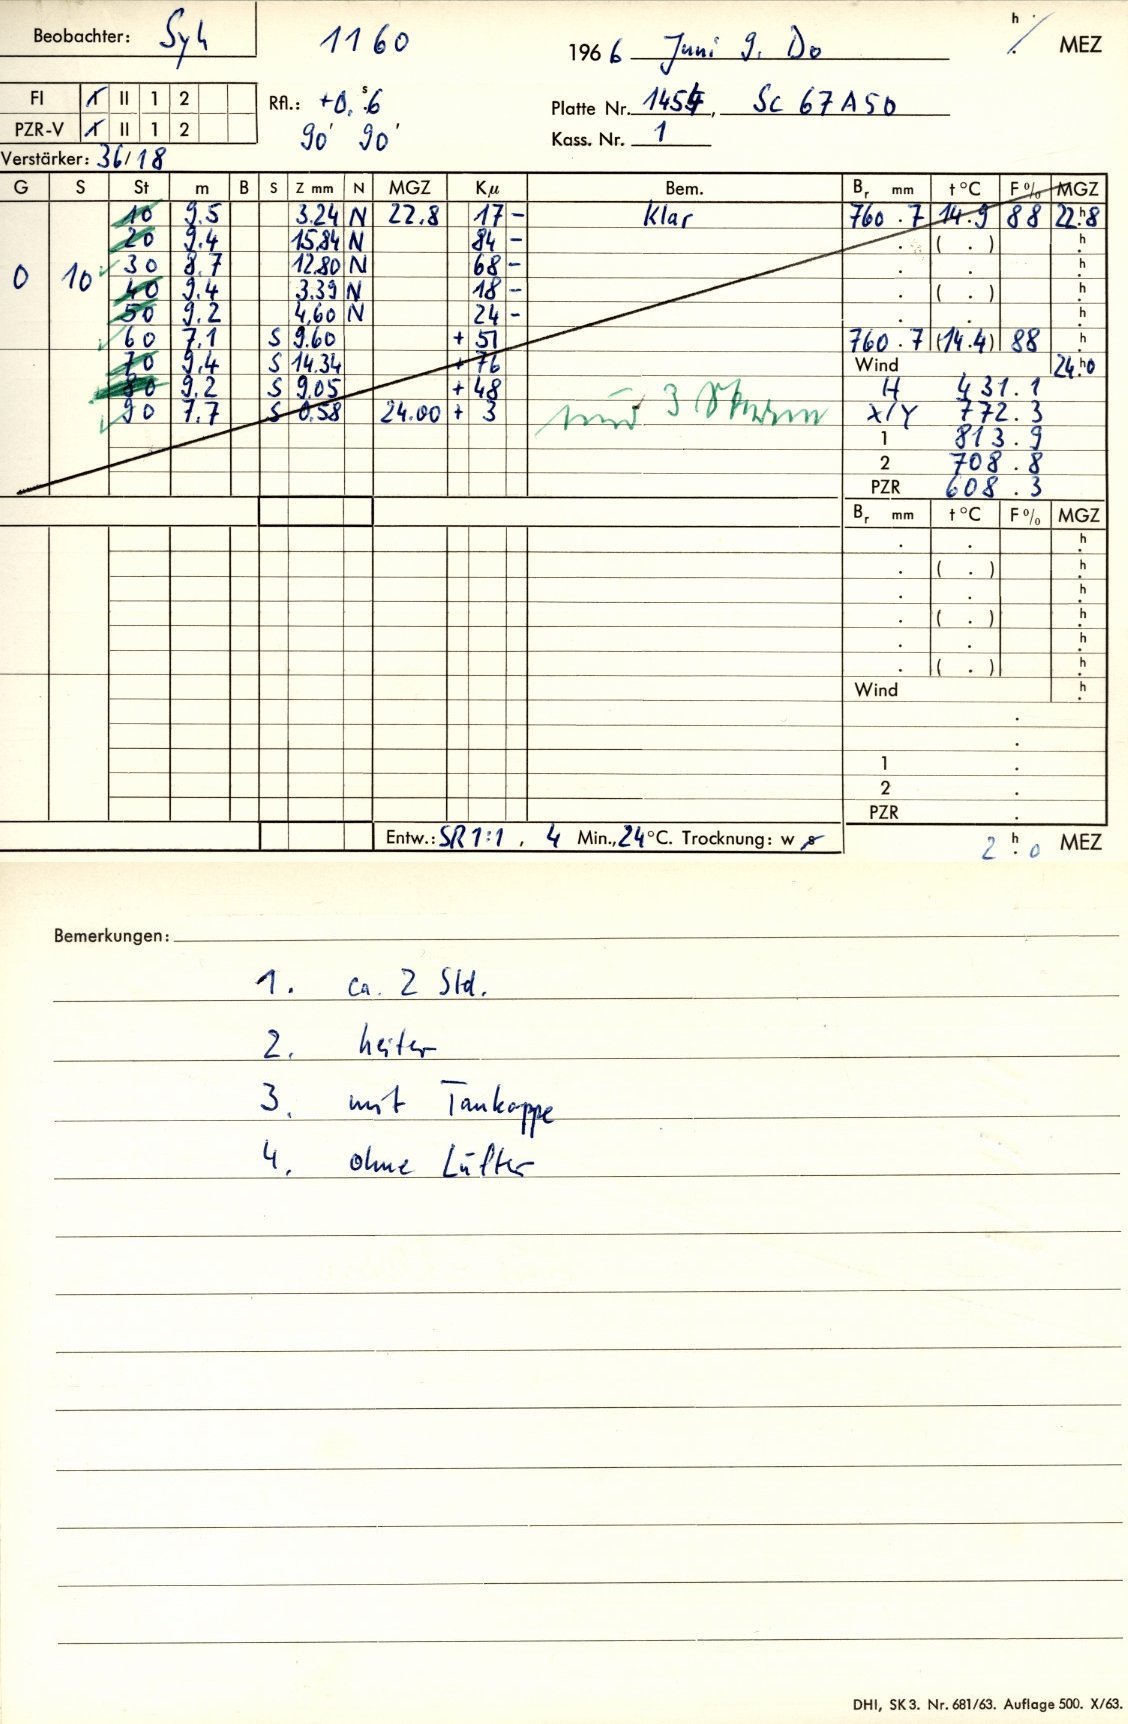 Beobachter: Syh 1160 1966 Juni 9. Do h MEZ
FI I II 1 2 Rfl.: +0,s6 Platte Nr. 1454, Sc 67A50
PZR-V I II 1 2 90' 90' Kass. Nr. 1
Verstärker: 36/18
G S St m B S Z mm N MGZ Kμ Bem. Br mm t °C F % MGZ
10 9.5 3.24 N 22.8 17 - Klar 760.7 14.9 88 22.h8
20 9.4 15.84 N 84 - . ( . ) h
0 10 30 8.7 12.80 N 68 - . . h
40 9.4 3.39 N 18 - . ( . ) h
50 9.2 4.60 N 24 - . . h
60 7.1 S 9.60 + 51 760.7 (14.4) 88 h
70 9.4 S 14.34 + 76 Wind 24.h0
80 9.2 S 9.05 + 48 H 431.1
90 7.7 S 0.58 24.00 + 3 nur 3 Stern X/Y 772.3
1 813.9
2 708.8
PZR 608.3
Br mm t °C F % MGZ
. . h
. ( . ) h
. . h
. ( . ) h
. . h
. ( . ) h
Wind h
.
.
1 .
2 .
PZR .
Entw.: SR 1:1, 4 Min., 24 °C. Trocknung: w s 2 h. 0 MEZ
Bemerkungen:
1. ca. 2 Std.
2. heiter
3. mit Taukappe
4. ohne Lüfter
DHI, SK 3. Nr. 681/63. Auflage 500. X/63.